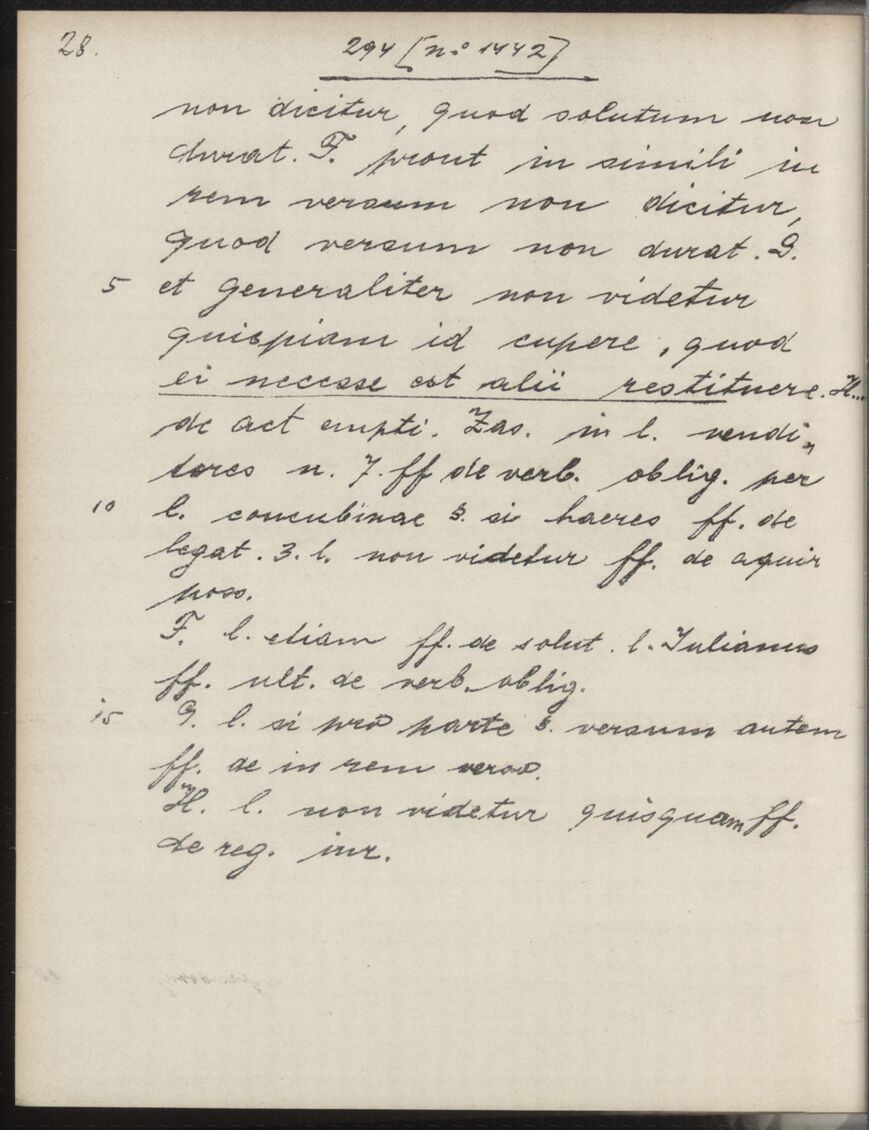 28.
294 [no 1442]
non dicitur, quod solutum non
durat. F. prout in simili in
rem versum non dicitur,
quod versum non durat. G.
5 et generaliter non videtur
quispiam id cupere, quod
ei necesse est alii restituere. H...
de act empti. Zas. in l. vendi„
tores n. 7. ff de verb. oblig. per
10 l. concubinae §. si haeres ff. de
legat. 3. l. non videtur ff. de aquir
poss.
F. l. etiam ff. de solut. l. Iulianus
ff. ult. de verb. oblig.
15 G. l. si pro parte §. versum autem
ff. de in rem verso.
H. l. non videtur quisquam ff.
de reg. iur.